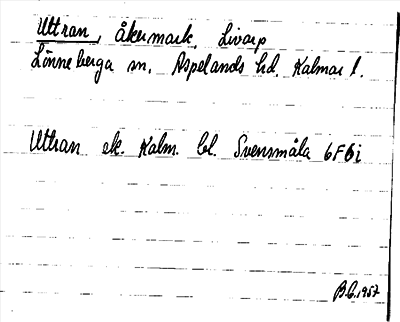 Uttran, åkermark, Livarp
Lönneberga sn. Aspelands hd. Kalmar l.
Uttran ek. Kalm. bl. Svensmåla 6F6i
B.G. 1957